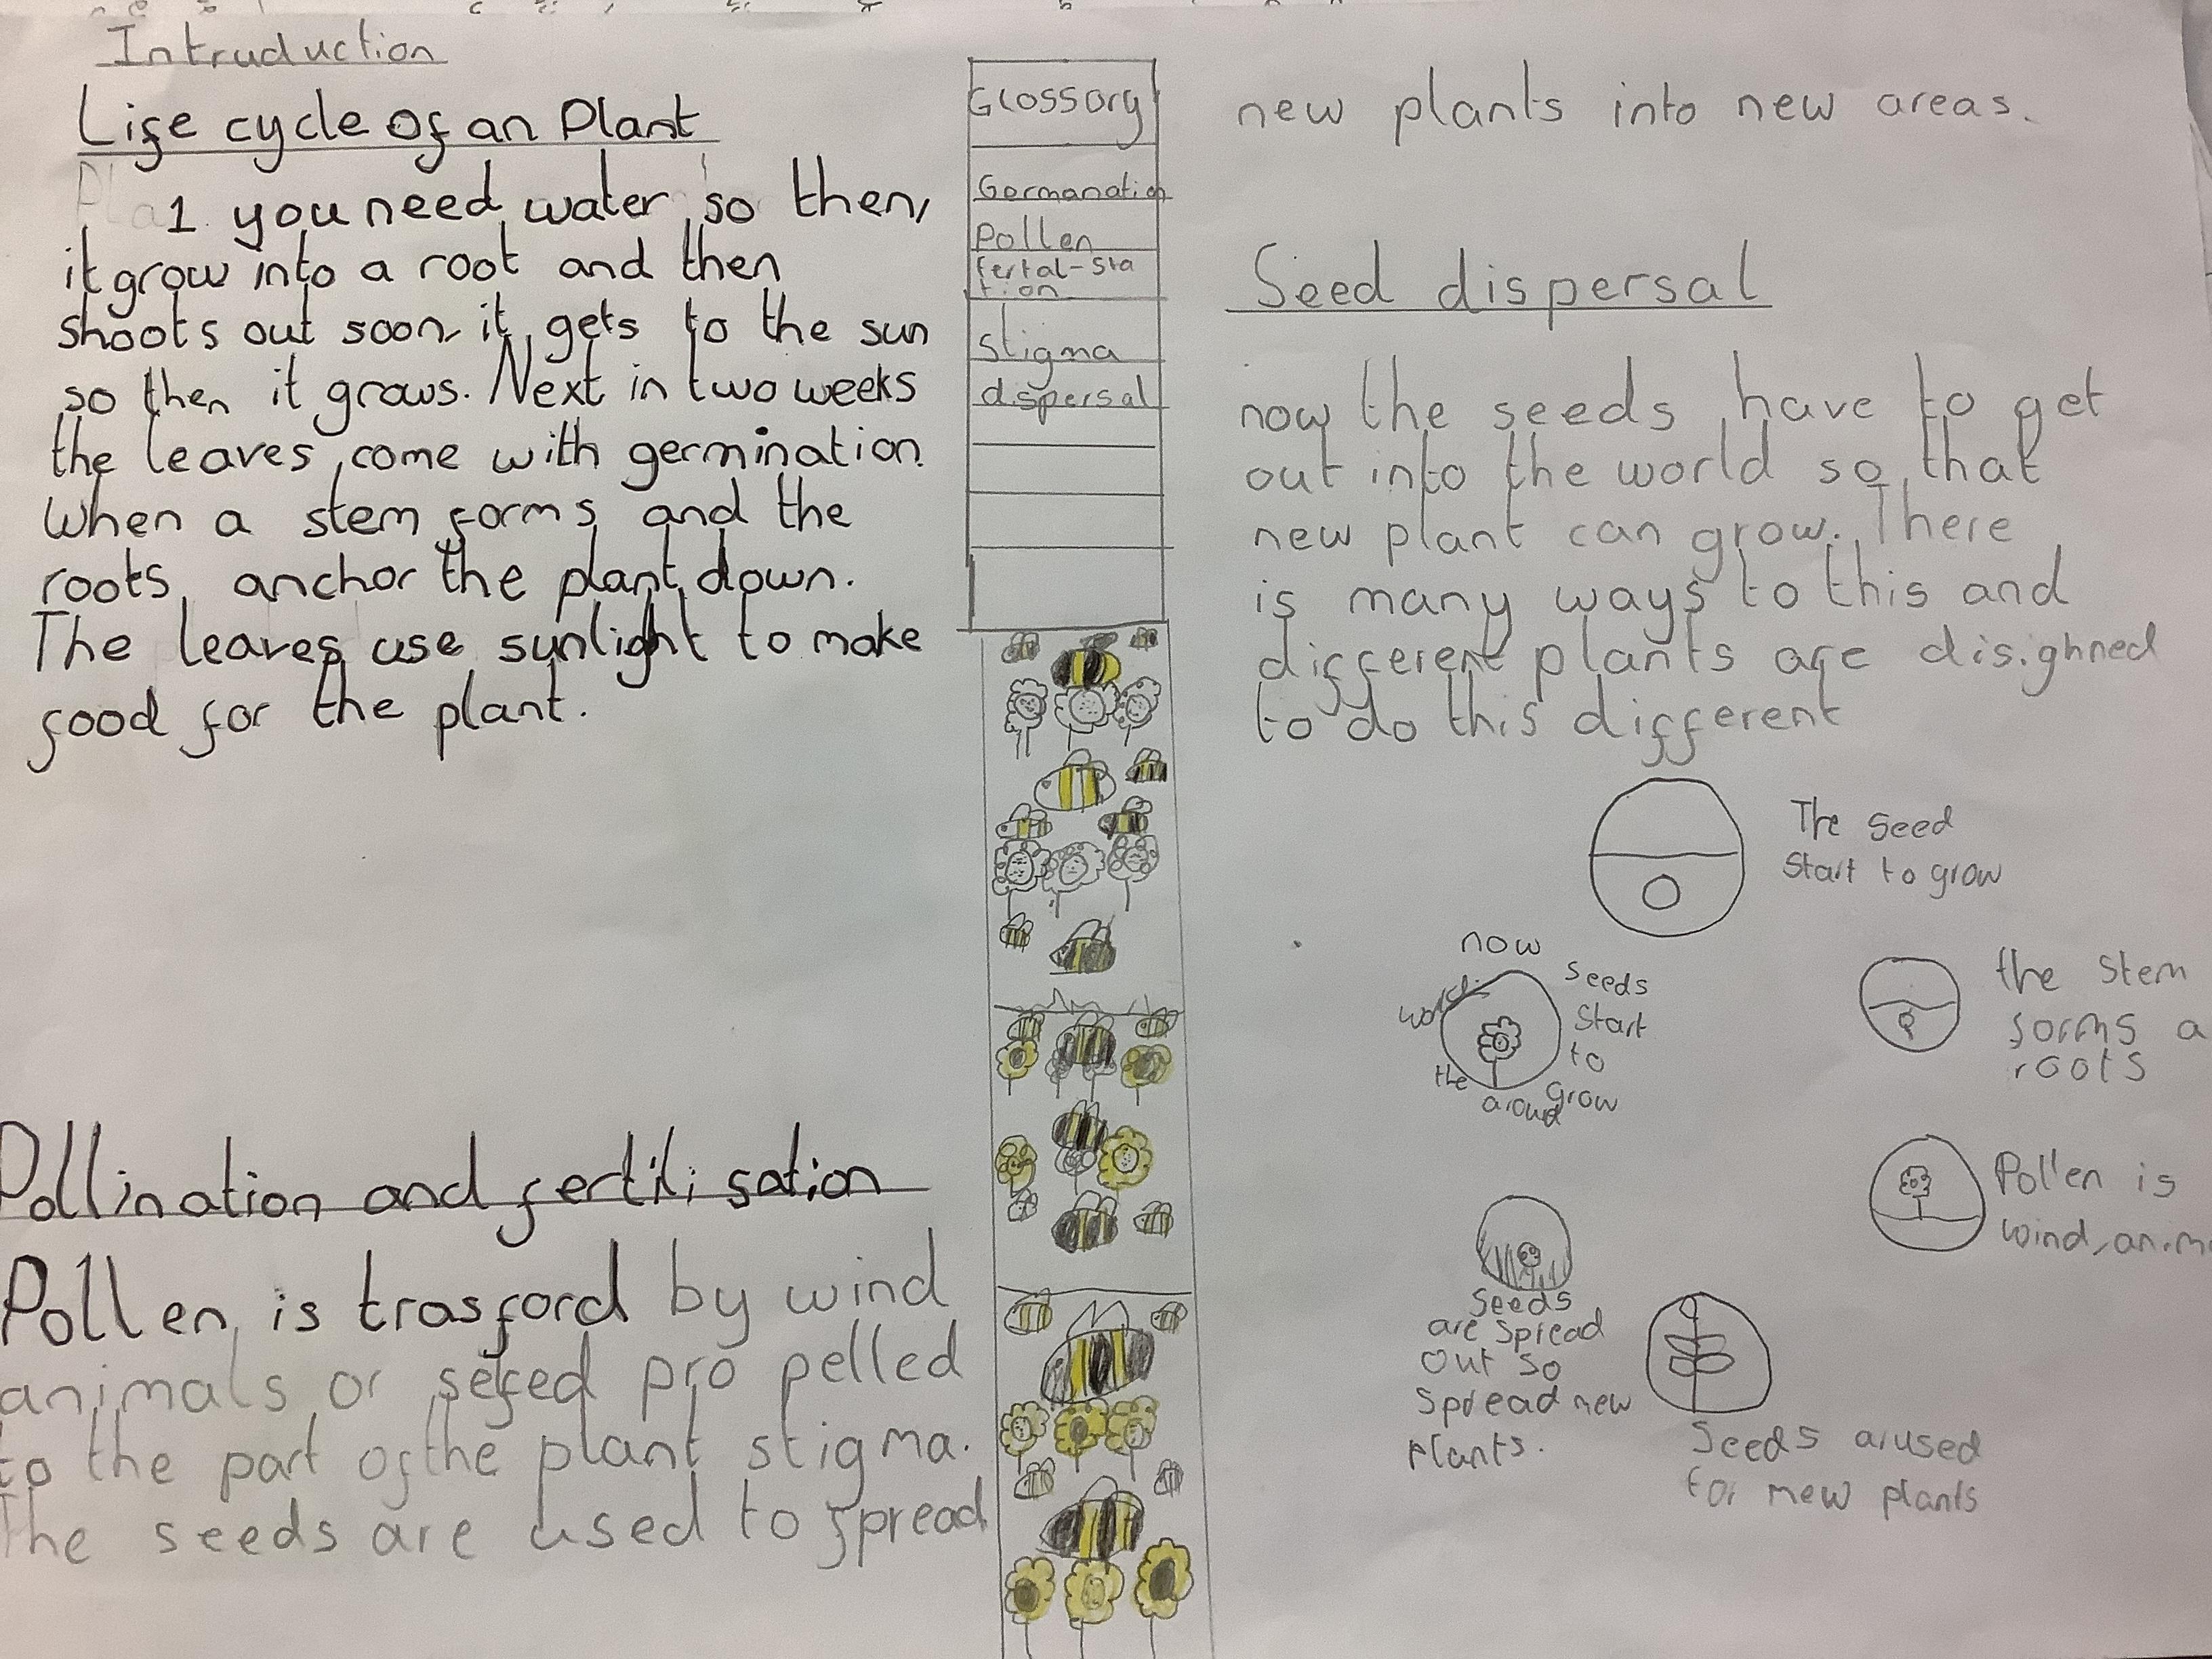 Intruduction
Life cycle of an Plant
1 you need water so then,
it grow into a root and then
shoots out soon it gets to the sun
so then it grows. Next in two weeks
the leaves come with germination.
When a stem forms and the
roots anchor the plant down.
The leaves use sunlight to make
food for the plant.
Pollination and fertilisation
Pollen is trasford by wind
animals or sefed pro pelled
to the part of the plant stigma.
The seeds are used to spread
Glossory
Germanation
Pollen
fertal-sta
tion
stigma
dispersal
new plants into new areas.
Seed dispersal
now the seeds have to get
out into the world so that
new plant can grow. There
is many ways to this and
different plants are disighned
to do this different
The seed
start to grow
the stem
forms a
roots
Pollen is
wind, anim
Seeds arused
for new plants
Seeds
are spread
out so
spread new
plants.
now
seeds
start
to
grow
around
the
world